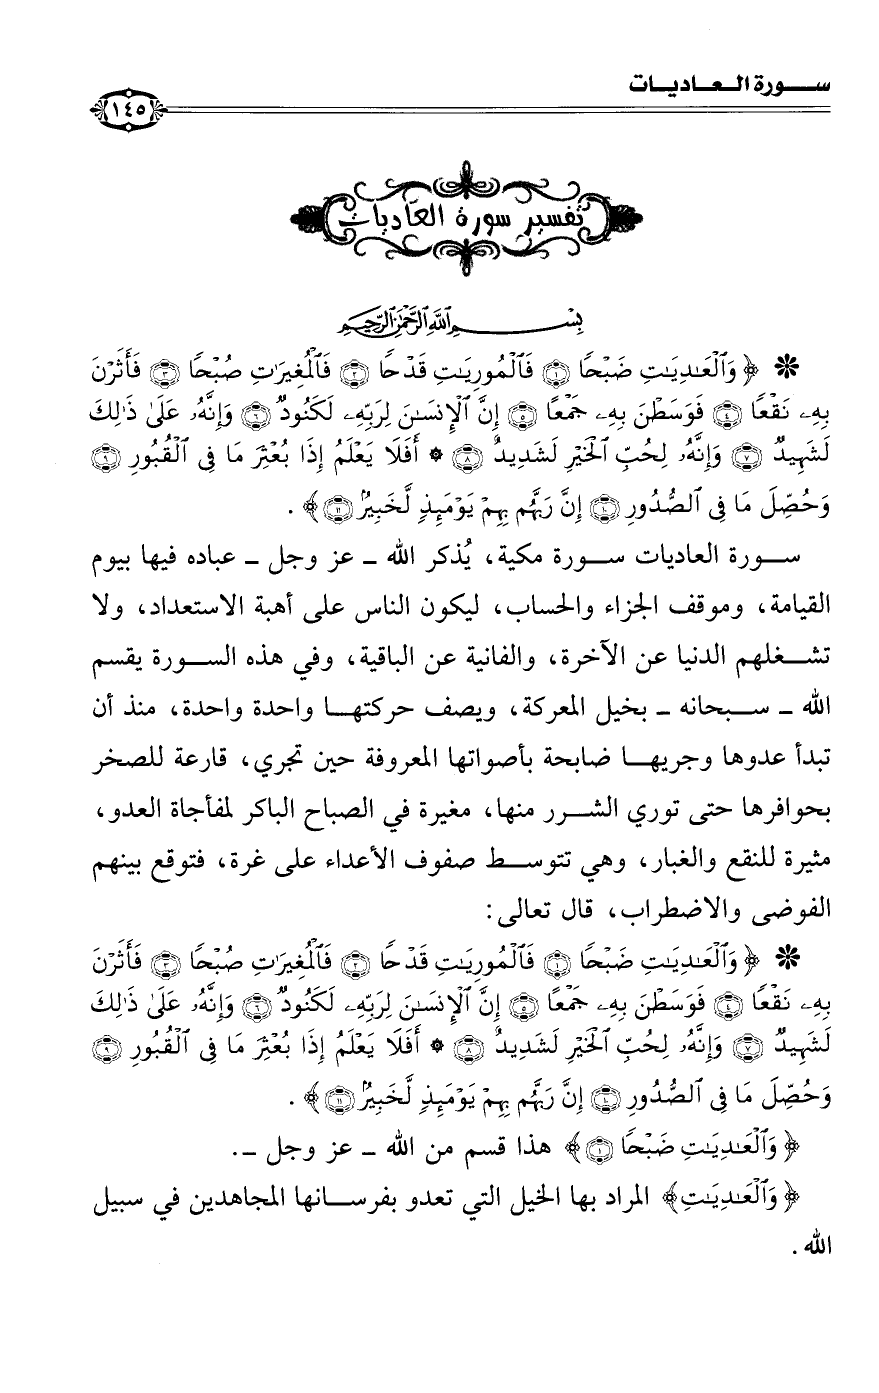 سـورة الـعـاديـات
١٤٥
تفسير سورة العاديات
بِسْمِ اللَّهِ الرَّحْمَٰنِ الرَّحِيمِ
* ﴿ وَٱلْعَٰدِيَٰتِ ضَبْحًا ١ فَٱلْمُورِيَٰتِ قَدْحًا ٢ فَٱلْمُغِيرَٰتِ صُبْحًا ٣ فَأَثَرْنَ
بِهِۦ نَقْعًا ٤ فَوَسَطْنَ بِهِۦ جَمْعًا ٥ إِنَّ ٱلْإِنسَٰنَ لِرَبِّهِۦ لَكَنُودٌ ٦ وَإِنَّهُۥ عَلَىٰ ذَٰلِكَ
لَشَهِيدٌ ٧ وَإِنَّهُۥ لِحُبِّ ٱلْخَيْرِ لَشَدِيدٌ ٨ * أَفَلَا يَعْلَمُ إِذَا بُعْثِرَ مَا فِى ٱلْقُبُورِ ٩
وَحُصِّلَ مَا فِى ٱلصُّدُورِ ١٠ إِنَّ رَبَّهُم بِهِمْ يَوْمَئِذٍ لَّخَبِيرٌۢ ١١ ﴾ .
سـورة العاديات سـورة مكية، يُذكر الله - عز وجل - عباده فيها بيوم
القيامة، وموقف الجزاء والحساب، ليكون الناس على أهبة الاستعداد، ولا
تشـغلهم الدنيا عن الآخرة، والفانية عن الباقية، وفي هذه السـورة يقسم
الله - سـبحانه - بخيل المعركة، ويصف حركتهـا واحدة واحدة، منذ أن
تبدأ عدوها وجريهـا ضابحة بأصواتها المعروفة حين تجري، قارعة للصخر
بحوافرها حتى توري الشـرر منها، مغيرة في الصباح الباكر لمفأجاة العدو،
مثيرة للنقع والغبار، وهي تتوسـط صفوف الأعداء على غرة، فتوقع بينهم
الفوضى والاضطراب، قال تعالى:
* ﴿ وَٱلْعَٰدِيَٰتِ ضَبْحًا ١ فَٱلْمُورِيَٰتِ قَدْحًا ٢ فَٱلْمُغِيرَٰتِ صُبْحًا ٣ فَأَثَرْنَ
بِهِۦ نَقْعًا ٤ فَوَسَطْنَ بِهِۦ جَمْعًا ٥ إِنَّ ٱلْإِنسَٰنَ لِرَبِّهِۦ لَكَنُودٌ ٦ وَإِنَّهُۥ عَلَىٰ ذَٰلِكَ
لَشَهِيدٌ ٧ وَإِنَّهُۥ لِحُبِّ ٱلْخَيْرِ لَشَدِيدٌ ٨ * أَفَلَا يَعْلَمُ إِذَا بُعْثِرَ مَا فِى ٱلْقُبُورِ ٩
وَحُصِّلَ مَا فِى ٱلصُّدُورِ ١٠ إِنَّ رَبَّهُم بِهِمْ يَوْمَئِذٍ لَّخَبِيرٌۢ ١١ ﴾ .
﴿ وَٱلْعَٰدِيَٰتِ ضَبْحًا ١ ﴾ هذا قسم من الله - عز وجل -.
﴿ وَٱلْعَٰدِيَٰتِ﴾ المراد بها الخيل التي تعدو بفرسـانها المجاهدين في سبيل
الله .